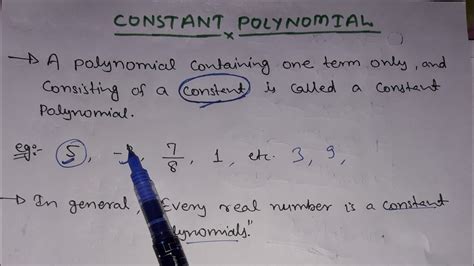 CONSTANT POLYNOMIAL
→ A polynomial containing one term only, and
Consisting of a constant is called a Constant
Polynomial.
eg:- 5, , 7/8, 1, etc. 3, 9,
→ In general, "Every real number is a constant
ynomials."